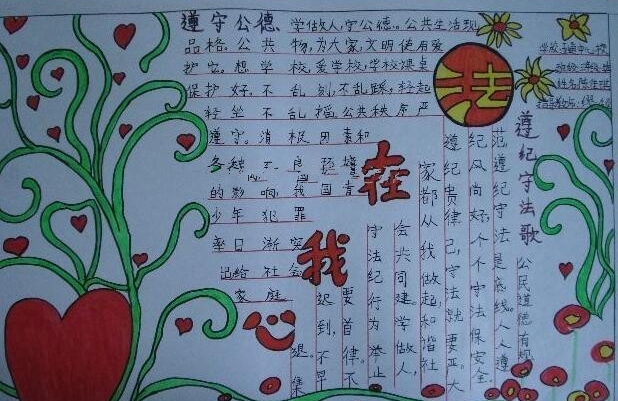 遵守公德 学做人,守公德。公共生活现
品格。公共物,为大家,文明使用爱
护它。想学校,爱学校,学校课桌
保护好,不乱刻,不乱踩,轻起
轻坐不乱摇。公共秩序严
遵守。消极因素和
各种不良环境
的影响,我国青
少年犯罪
率日渐突
出给社会
家庭
法在我心
遵纪守法歌
公民道德有规
范遵纪守法是底线。人人遵
纪风尚好,个个守法保安全。
遵纪贵律己,守法就要严。大
家都从我做起,和谐社
会共同建。学做人,
守法纪,行为举止
要首律。不
迟到,不早
退。集